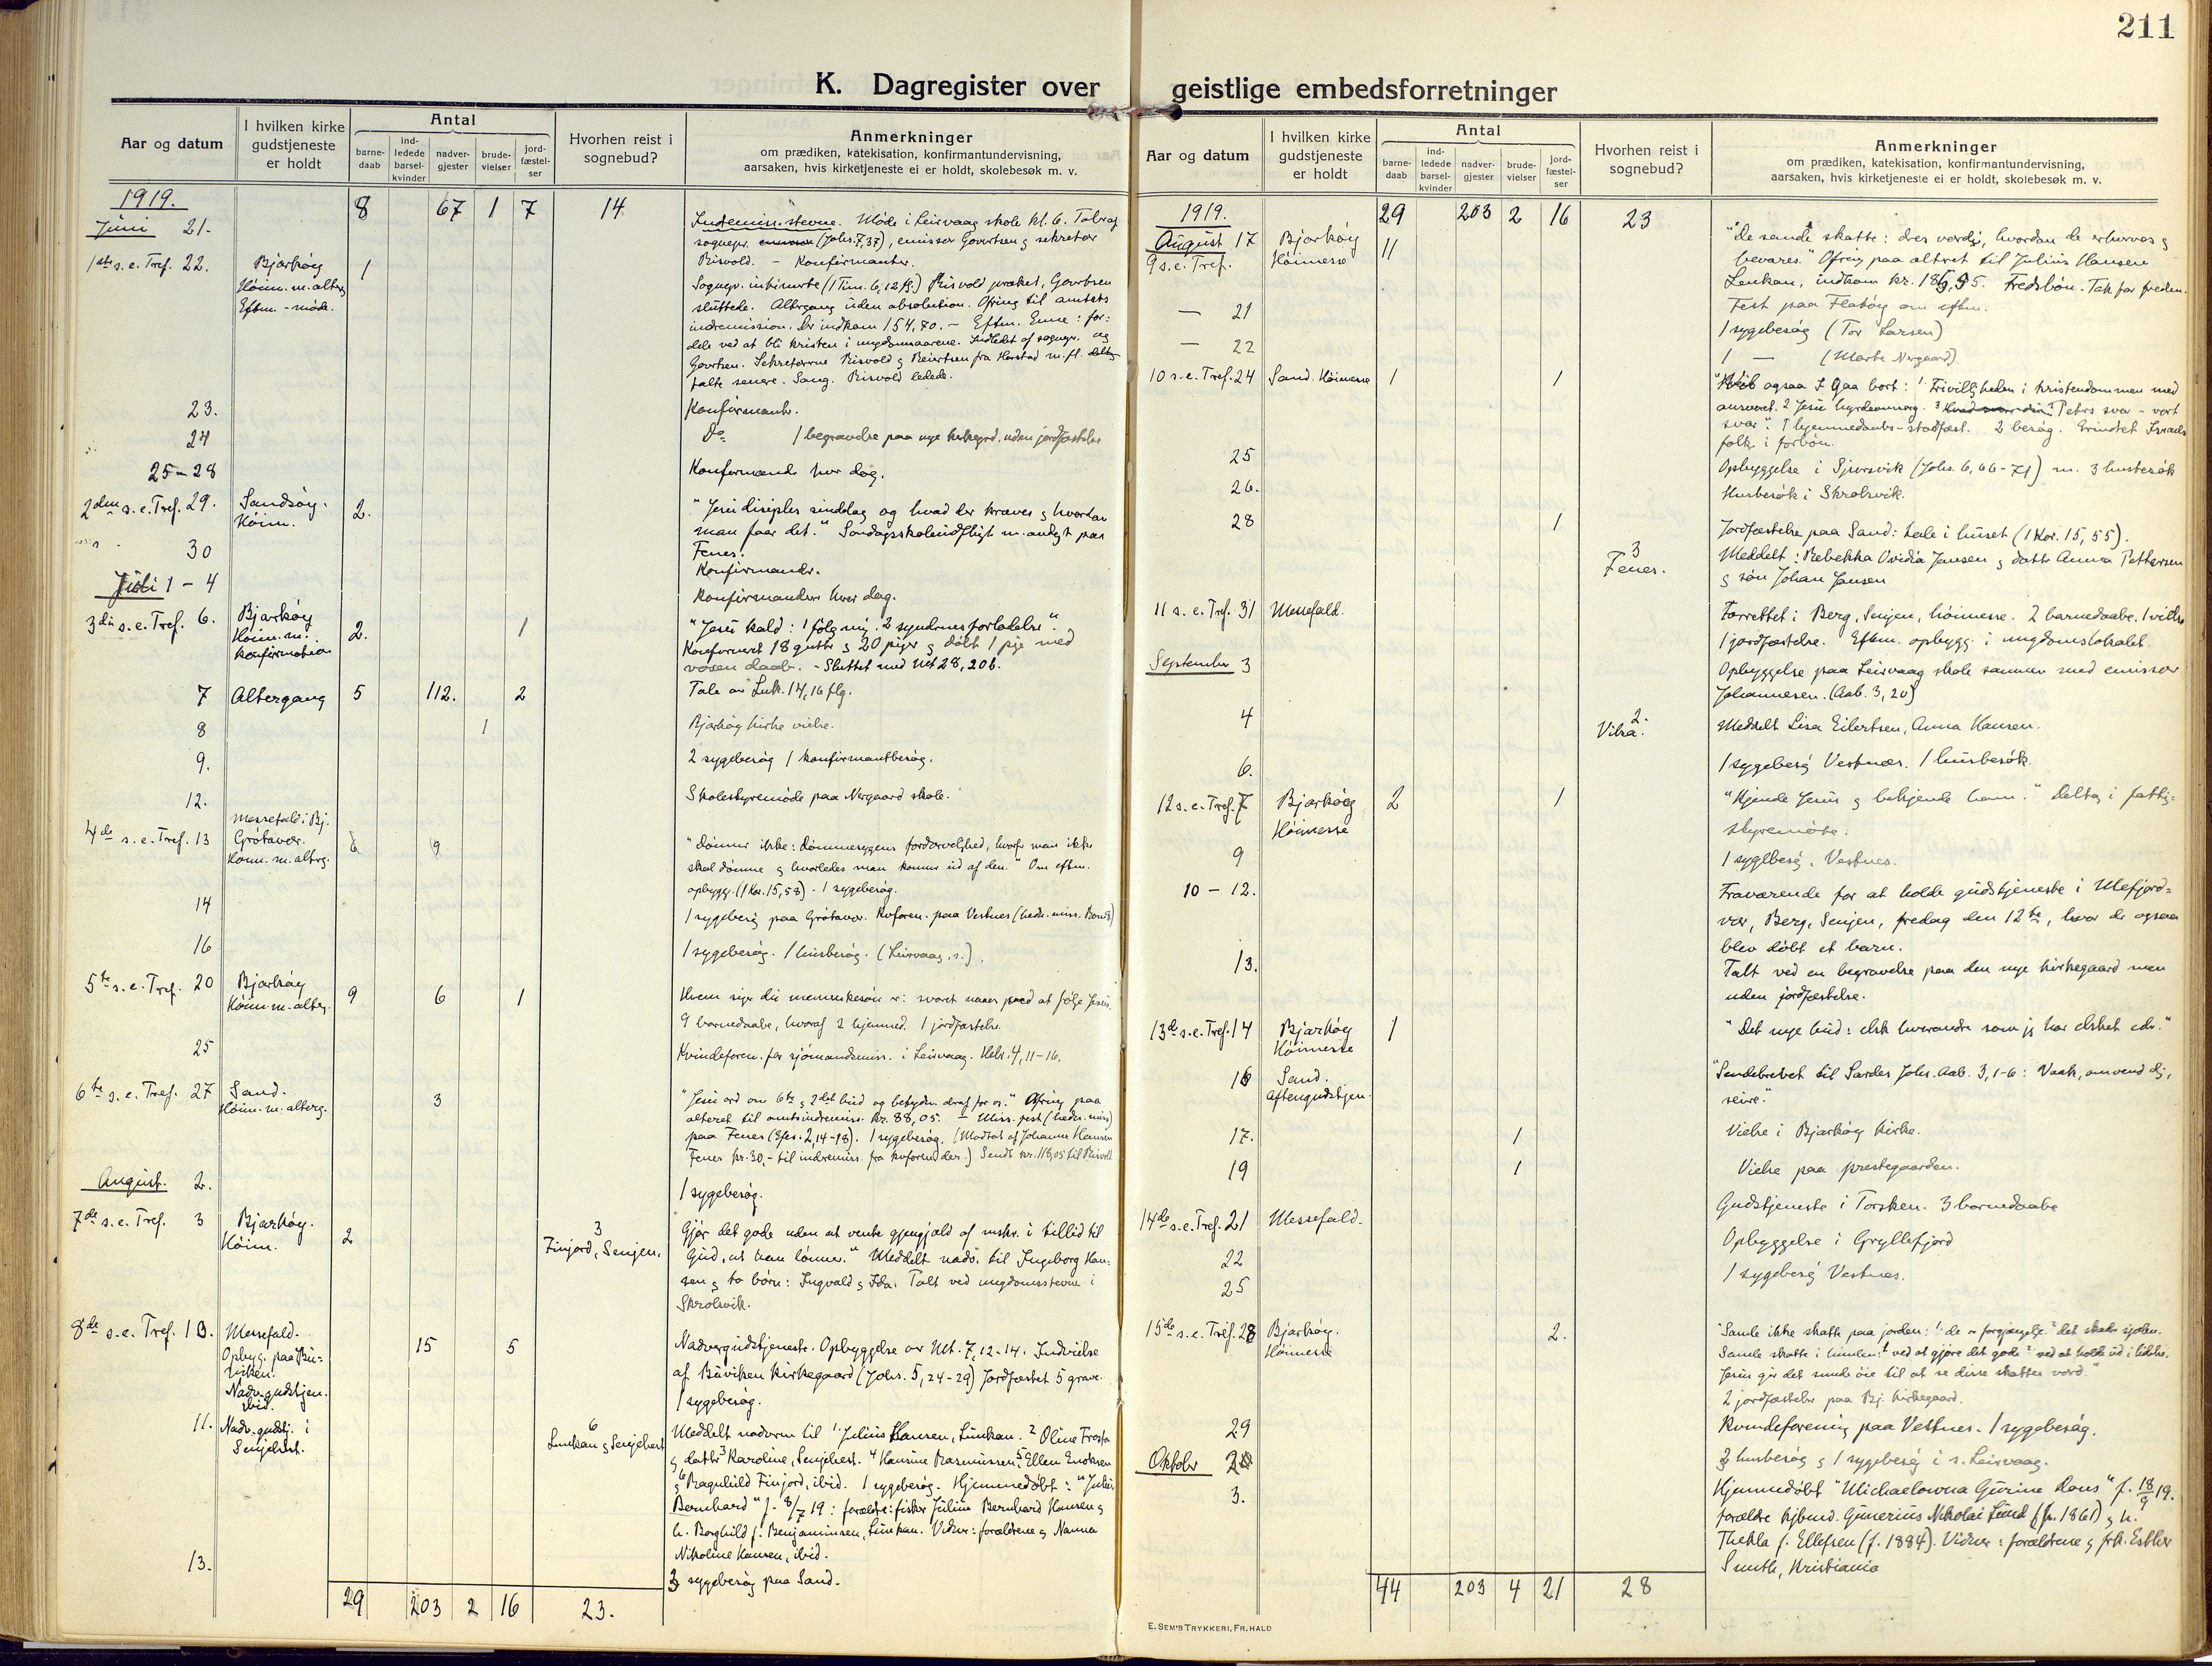 211
K. Dagregister over geistlige embedsforretninger
Aar og datum
I hvilken kirke gudstjeneste er holdt
Antal
barne-daab
ind-ledede barsel-kvinder
nadver-gjester
brude-vielser
jord-fæstel-ser
Hvorhen reist i sognebud?
Anmerkninger
om prædiken, katekisation, konfirmantundervisning,
aarsaken, hvis kirketjeneste ei er holdt, skolebesøk m. v.
1919.
8 67 1 7 14
Juni 21. Indremiss. stevne. Møde i Leirvaag skole kl. 6. Tale af
sognepr. (Johs. 7,37), emissær Govertsen & sekretær
Risvold. – Konfirmanter.
1ste s. e. Tref. 22. Bjarkøy 1
Høim. m. alterg.
Eftm. - møde.
Sognepr. intimerte (1 Tim. 6,12 fg.) Risvold præket, Govertsen
sluttede. Altergang uden absolution. Ofring til amtets
indremission. Der indkom 154,70. – Eftm. Emne: for:
dele ved at bli kristen i ungdomsaarene. Indledet af sognepr. og
Govertsen. Sekretærerne Risvold & Beiertsen fra Harstad m. fl.
talte senere. Sang. Risvold ledede.
23. Konfirmant.
24 Do 1 begravelse paa nye kirkegrd. uden jordfæstelse
25 – 28 Konfirmande hver dag.
2den s. e. Tref. 29. Sandsøy. 2.
Høim.
"Jesu disiples sindelag og hvad der kræves & hvordan
man faar det." Søndagsskoleudflugt m. andagt paa
Fenes.
30 Konfirmandr.
Juli 1 – 4 Konfirmander hver dag.
3die s. e. Tref. 6. Bjarkøy 2. 1
Høim. m.
konfirmation
"Jesu kald: 1 følg mig. 2 syndernes forladelse".
Konfirmeret 18 gutter & 20 piger & døbt 1 pige med
voxen daab. – Sluttet med Mt 28, 20 b.
7 Altergang 5 112. 2 Tale ov Luk. 14,16 flg.
8 1 Bjarkøy kirke vielse.
9. 2 sygebesøg 1 konfirmantbesøg.
12. Skolestyremøde paa Nergaard skole.
Messefald i Bj.
4de s. e. Tref. 13 Grøtavær. 6 9
Høim. m. alterg.
"Dømmer ikke: dømmesygens fordærvelighed, hvorfor man ikke
skal dømme & hvorledes man kommer ud af den." Om eftm.
opbygg. (1 Kor. 15,58) - 1 sygebesøg.
14 1 sygebesøg paa Grøtavær. Kvforen. paa Vestnes
16 1 sygebesøg. 1 husbesøg. (Leirvaag, s.).
5te s. e. Tref. 20 Bjarkøy 9 6 1
Høim. m. alterg.
Hvem siger du menneskesøn er: svaret naaes paa ved at følge Jesus.
9 barnedaabe, hvoraf 2 hjemmed. 1 jordfæstelse
25 Kvindeforen. for sjømandsmiss. i Leirvaag. Hebr. 4, 11–16.
6te s. e. Tref. 27 Sand. 3
Høim. m. alterg.
"Jesu ord om 6te & 2det bud og betydn. deraf for os." Ofring paa
alteret til amtsindremiss. kr. 88,05. – Miss. fest (hedn. miss)
paa Fenes (Efes. 2,14–18). 1 sygebesøg. (Modtat af Johanne Hansen
Fenes kr. 30,- til indremiss. fra kvforen der.) Sendt kr. 118,05 til Risvold
August. 2. 1 sygebesøg.
7de s. e. Tref. 3 Bjarkøy. 2
Høim.
3
Finjord, Senjen.
Gjør det gode uden at vente gjengjæld af mskr. i tillid til
Gud, at han lønner." Meddelt nadv. til Ingeborg Han-
sen & to børn: Ingvald & Ida. Talt ved ungdomsstevne i
Skrolsvik.
8de s. e. Tref. 10. Messefald. 15 5
Opbyg. paa Bu-
viken.
Nadv. gudstjen.
ibid.
Nadvergudstjeneste. Opbyggelse ov Mt. 7, 12-14. Indvielse
af Buviken kirkegaard (Johs. 5, 24-29) Jordfæstet 5 grave.
1 sygebesøg.
11. Nadv. gudstj. i
Senjehest.
6
Linekan & Senjehest
Meddelt nadveren til 1. Julius Hansen, Linekan. 2 Oline
& datter 3 Karoline, Senjehest. 4 Hansine Rasmussen. 5 Ellen Enoksen
& 6 Ragnhild Finjord, ibid. 1 sygebesøg. Hjemmedøbt: "Julius
Bernhard" f. 8/7 19: forældre: fisker Julius Bernhard Hansen &
h. Borghild f. Benjaminsen, Linekan. Vidner: forældrene & Nanna
Nikoline Hansen, ibid.
13. 3 sygebesøg paa Sand.
29 203 2 16 23.
Aar og datum
I hvilken kirke gudstjeneste er holdt
Antal
barne-daab
ind-ledede barsel-kvinder
nadver-gjester
brude-vielser
jord-fæstel-ser
Hvorhen reist i sognebud?
Anmerkninger
om prædiken, katekisation, konfirmantundervisning,
aarsaken, hvis kirketjeneste ei er holdt, skolebesøk m. v.
1919.
29 203 2 16 23
August 17 Bjarkøy 11
9 s. e. Tref. Høimesse
"De sande skatte: deres værdi, hvordan de erhverves &
bevares." Ofring paa altret til Julius Hansen
Lenkan, indkom kr. 186,95. Fredsbøn. Tak for freden.
Fest paa Flatøy om eftm.
— 21 1 sygebesøg (Tor Larsen)
— 22 1 — (Marte Nergaard).
10 s. e. Tref. 24 Sand. Høimesse 1 1
ogsaa I gaa bort: 1. Frivilligheden i kristendommen med
ansvaret. 2 Jesu hyrdeomsorg. 3 Petrs svar – vort
svar". 1 hjemmedaabs-stadfæst. 2 besøg. Erindret Israels
folk i forbøn.
25 Opbyggelse i Sjursvik (Johs. 6, 66-71) m. 3 husbesøk
26. Husbesøk i Skrolsvik.
28 1 Jordfæstelse paa Sand: tale i huset (1 Kor. 15, 55).
3
Fenes.
Meddelt: Rebekka Ovidia Jensen & datter Anna Pettersen
& søn Johan Jensen
11 s. e. Tref. 31 Messefald.
Forrettet i Berg, Senjen, høimesse. 2 barnedaabe, 1 vielse
1 jordfæstelse. Eftm. opbygg. i ungdomslokalet.
September 3 Opbyggelse paa Leirvaag skole sammen med emissær
Johannesen. (Aab. 3, 20)
4 2. Meddelt Lisa Eilertsen, Anna Hansen.
6. 1 sygebesøg Vestnes. 1 husbesøk.
12 s. e. Tref. 7 Bjarkøy 2 1
Høimesse
"Kjende Jesus & bekjende ham." Deltog i fattig-
styremøte.
9 1 sygebesøg. Vestnes.
10 – 12. Fraværende for at holde gudstjeneste i Mefjord-
vær, Berg, Senjen, fredag den 12te, hvor de ogsaa
blev døbt et barn.
13. Talt ved en begravelse paa den nye kirkegaard men
uden jordfæstelse.
13de s. e. Tref. 14 Bjarkøy 1
Høimesse
"Det nye bud: elsk hverandre som jeg har elsket eder."
16 Sand.
Aftengudstjen.
"Sendebrevet til Sardes Johs. Aab. 3, 1-6: Vaak, omvend dig,
seire."
17. 1 Vielse i Bjarkøy kirke.
19 1 Vielse paa prestegaarden.
14de s. e. Tref. 21 Messefald. Gudstjeneste i Torsken. 3 barnedaabe
22 Opbyggelse i Gryllefjord
25 1 sygebesøg Vestnes.
15de s. e. Tref. 28 Bjarkøy. 2.
Høimesse
"Samle ikke skatte paa jorden: 1. de er forgjængelige 2 det skader sjælen.
Samle skatte i himlen: 1 ved at gjøre det gode 2 ved at holde ud i lidelse.
Jesus gir det sunde øie til at se disse skattes værd."
2 jordfæstelser paa Bj. kirkegaard.
29 Kvindeforening paa Vestnes. 1 sygebesøg.
Oktober 2 3 husbesøg & 1 sygebesøg i s. Leirvaag.
3. Hjemmedøbt "Michaelowna Gurine Rons" f. 18/9 19.
forældre kjbmd. Gunerius Nikolai Lund (f. 1861) & h.
Thekla f. Ellefsen (f. 1884). Vidner: forældrene & frk. Esther
Smith, Kristiania
44 203 4 21 28
E. SEM'S TRYKKERI, FR. HALD